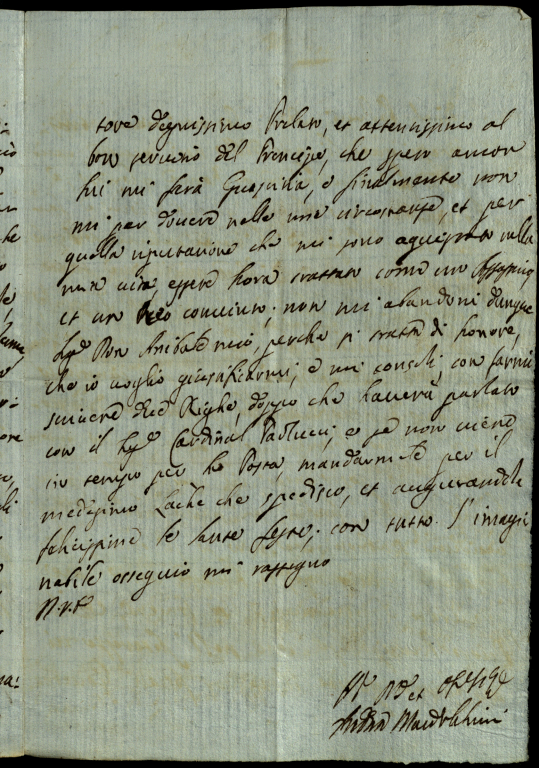 tore degnissimo Prelato, et attentissimo al
bon servitio del Prencipe, che spero ancor
lui mi farà Giustitia, e finalmente non
mi par dovere nelle mie circostanze, et per
quella riputatione che mi sono aquistato nella
mia vita, essere hora trattato come un
et un Reo convinto; non mi abandoni dunque
Don Anibale mio, perche si tratta di honore,
che io voglio giustificarmi, e mi consoli, con farmi
scrivere due Righe, doppo che haverà parlato
con il Cardinal Paulucci, e se non viene
in tempo per la Posta, mandarmele per il
medesimo Lache che spedisco, et augurandole
felicissime le sante feste, con tutto l'imagi
nabile ossequio mi rassegno
et
Maidalchini